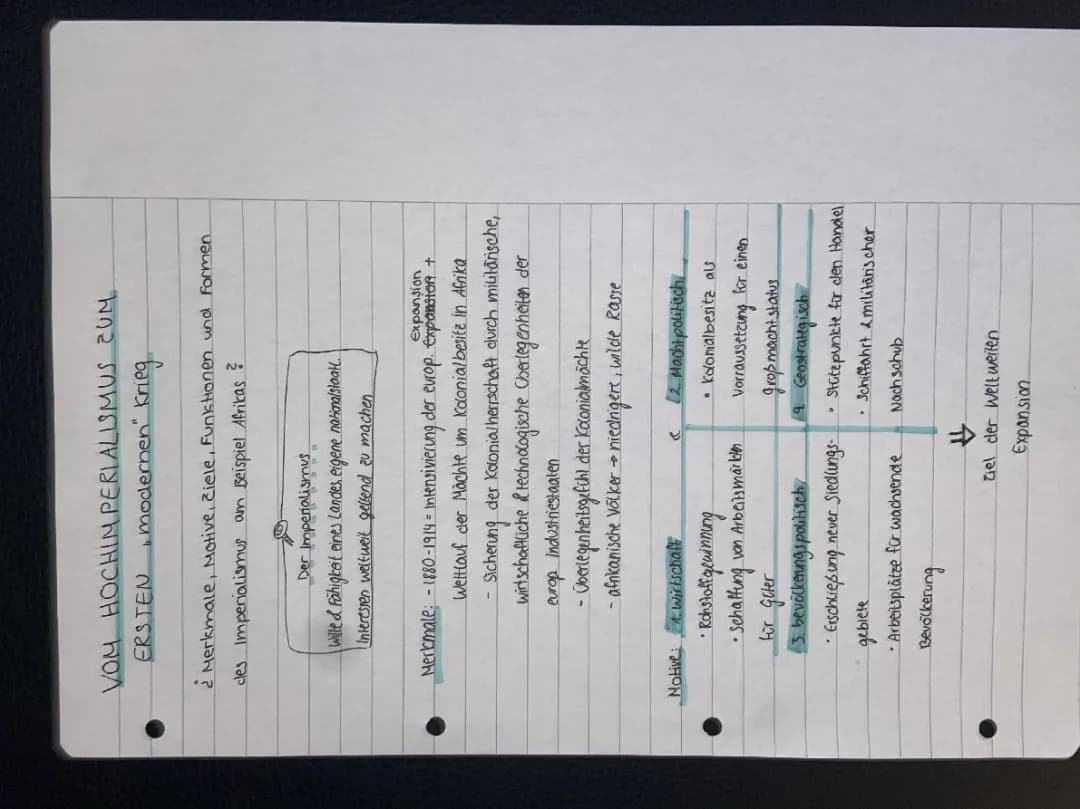 VOM HOCHIMPERIALISMUS ZUM
ERSTEN „modernen" Krieg
¿ Merkmale, Motive, Ziele, Funktionen und Formen
des Imperialismus am Beispiel Afrikas ?
Der Imperialismus
Wille & Fähigkeit eines Landes, eigene nationalstaatl.
Interessen weltweit geltend zu machen
Expansion
Merkmale: - 1880-1914 = Intensivierung der europ. +
Wettlauf der Mächte um Kolonialbesitz in Afrika
- Sicherung der Kolonialherrschaft durch militärische,
wirtschaftliche & technologische Überlegenheiten der
europ Industriestaaten
- Überlegenheitsgefühl der Kolonialmächte
- afrikanische Völker → niedrigert, wilde Rasse
Motive: 1. Wirtschaft
• Rohstoffgewinnung
• Schaffung von Arbeitsmärkten
für Güter
2. Machtpolitisch
• Kolonialbesitz als
Vorraussetzung für einen
großmachtstatus
3. bevölkerungspolitisch
• Erschließung neuer Siedlungs-
gebiete
• Arbeitsplätze für wachsende
Bevölkerung
4. Geostrategisch
• Stützpunkte für den Handel
• Schifffahrt & militärischer
Nachschub
⇓
Ziel der weltweiten
Expansion